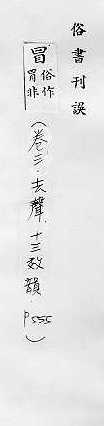 俗書刊誤
冒 俗作冒非
(卷三．去聲．十三效韻．p555)